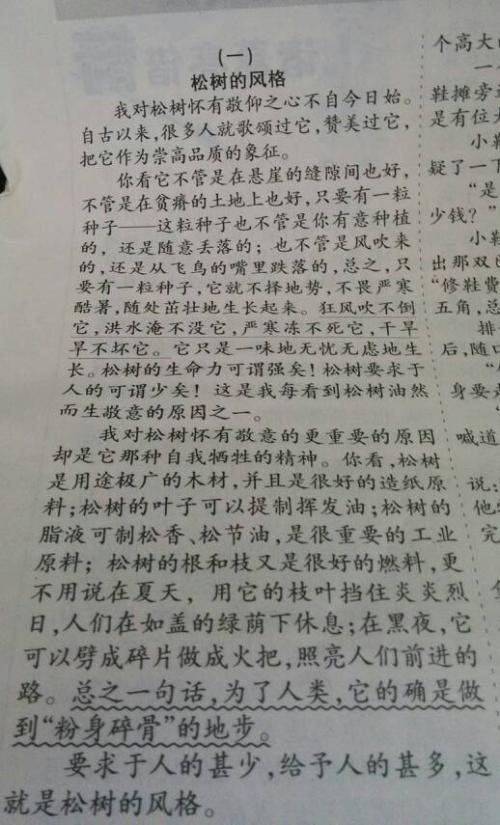 (一)
松树的风格
我对松树怀有敬仰之心不自今日始。
自古以来,很多人就歌颂过它,赞美过它,
把它作为崇高品质的象征。
你看它不管是在悬崖的缝隙间也好,
不管是在贫瘠的土地上也好,只要有一粒
种子——这粒种子也不管是你有意种植
的,还是随意丢落的;也不管是风吹来
的,还是从飞鸟的嘴里跌落的,总之,只
要有一粒种子,它就不择地势,不畏严寒
酷暑,随处茁壮地生长起来。狂风吹不倒
它,洪水淹不没它,严寒冻不死它,干旱
旱不坏它。它只是一味地无忧无虑地生
长。松树的生命力可谓强矣!松树要求于
人的可谓少矣!这是我每看到松树油然
而生敬意的原因之一。
我对松树怀有敬意的更重要的原因
却是它那种自我牺牲的精神。你看,松树
是用途极广的木材,并且是很好的造纸原
料;松树的叶子可以提制挥发油;松树的
脂液可制松香、松节油,是很重要的工业
原料;松树的根和枝又是很好的燃料,更
不用说在夏天,用它的枝叶挡住炎炎烈
日,人们在如盖的绿荫下休息;在黑夜,它
可以劈成碎片做成火把,照亮人们前进的
路。总之一句话,为了人类,它的确是做
到“粉身碎骨”的地步。
要求于人的甚少,给予人的甚多,这
就是松树的风格。
个高大
一
鞋摊旁
是有位
小
疑了一下
“是
少钱?”
小鞋
出那双
“修鞋费
五角,总
排
后,随
身要
喊道
说:
他
完